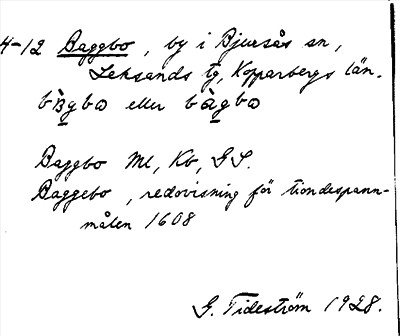 4-12 Baggbo, by i Bjursås sn,
Leksands tg, Kopparbergs län.
eller
Baggbo Ml, Kb, GS.
Baggebo, redovisning för tiondespann-
målen 1608
G. Tideström 1928.